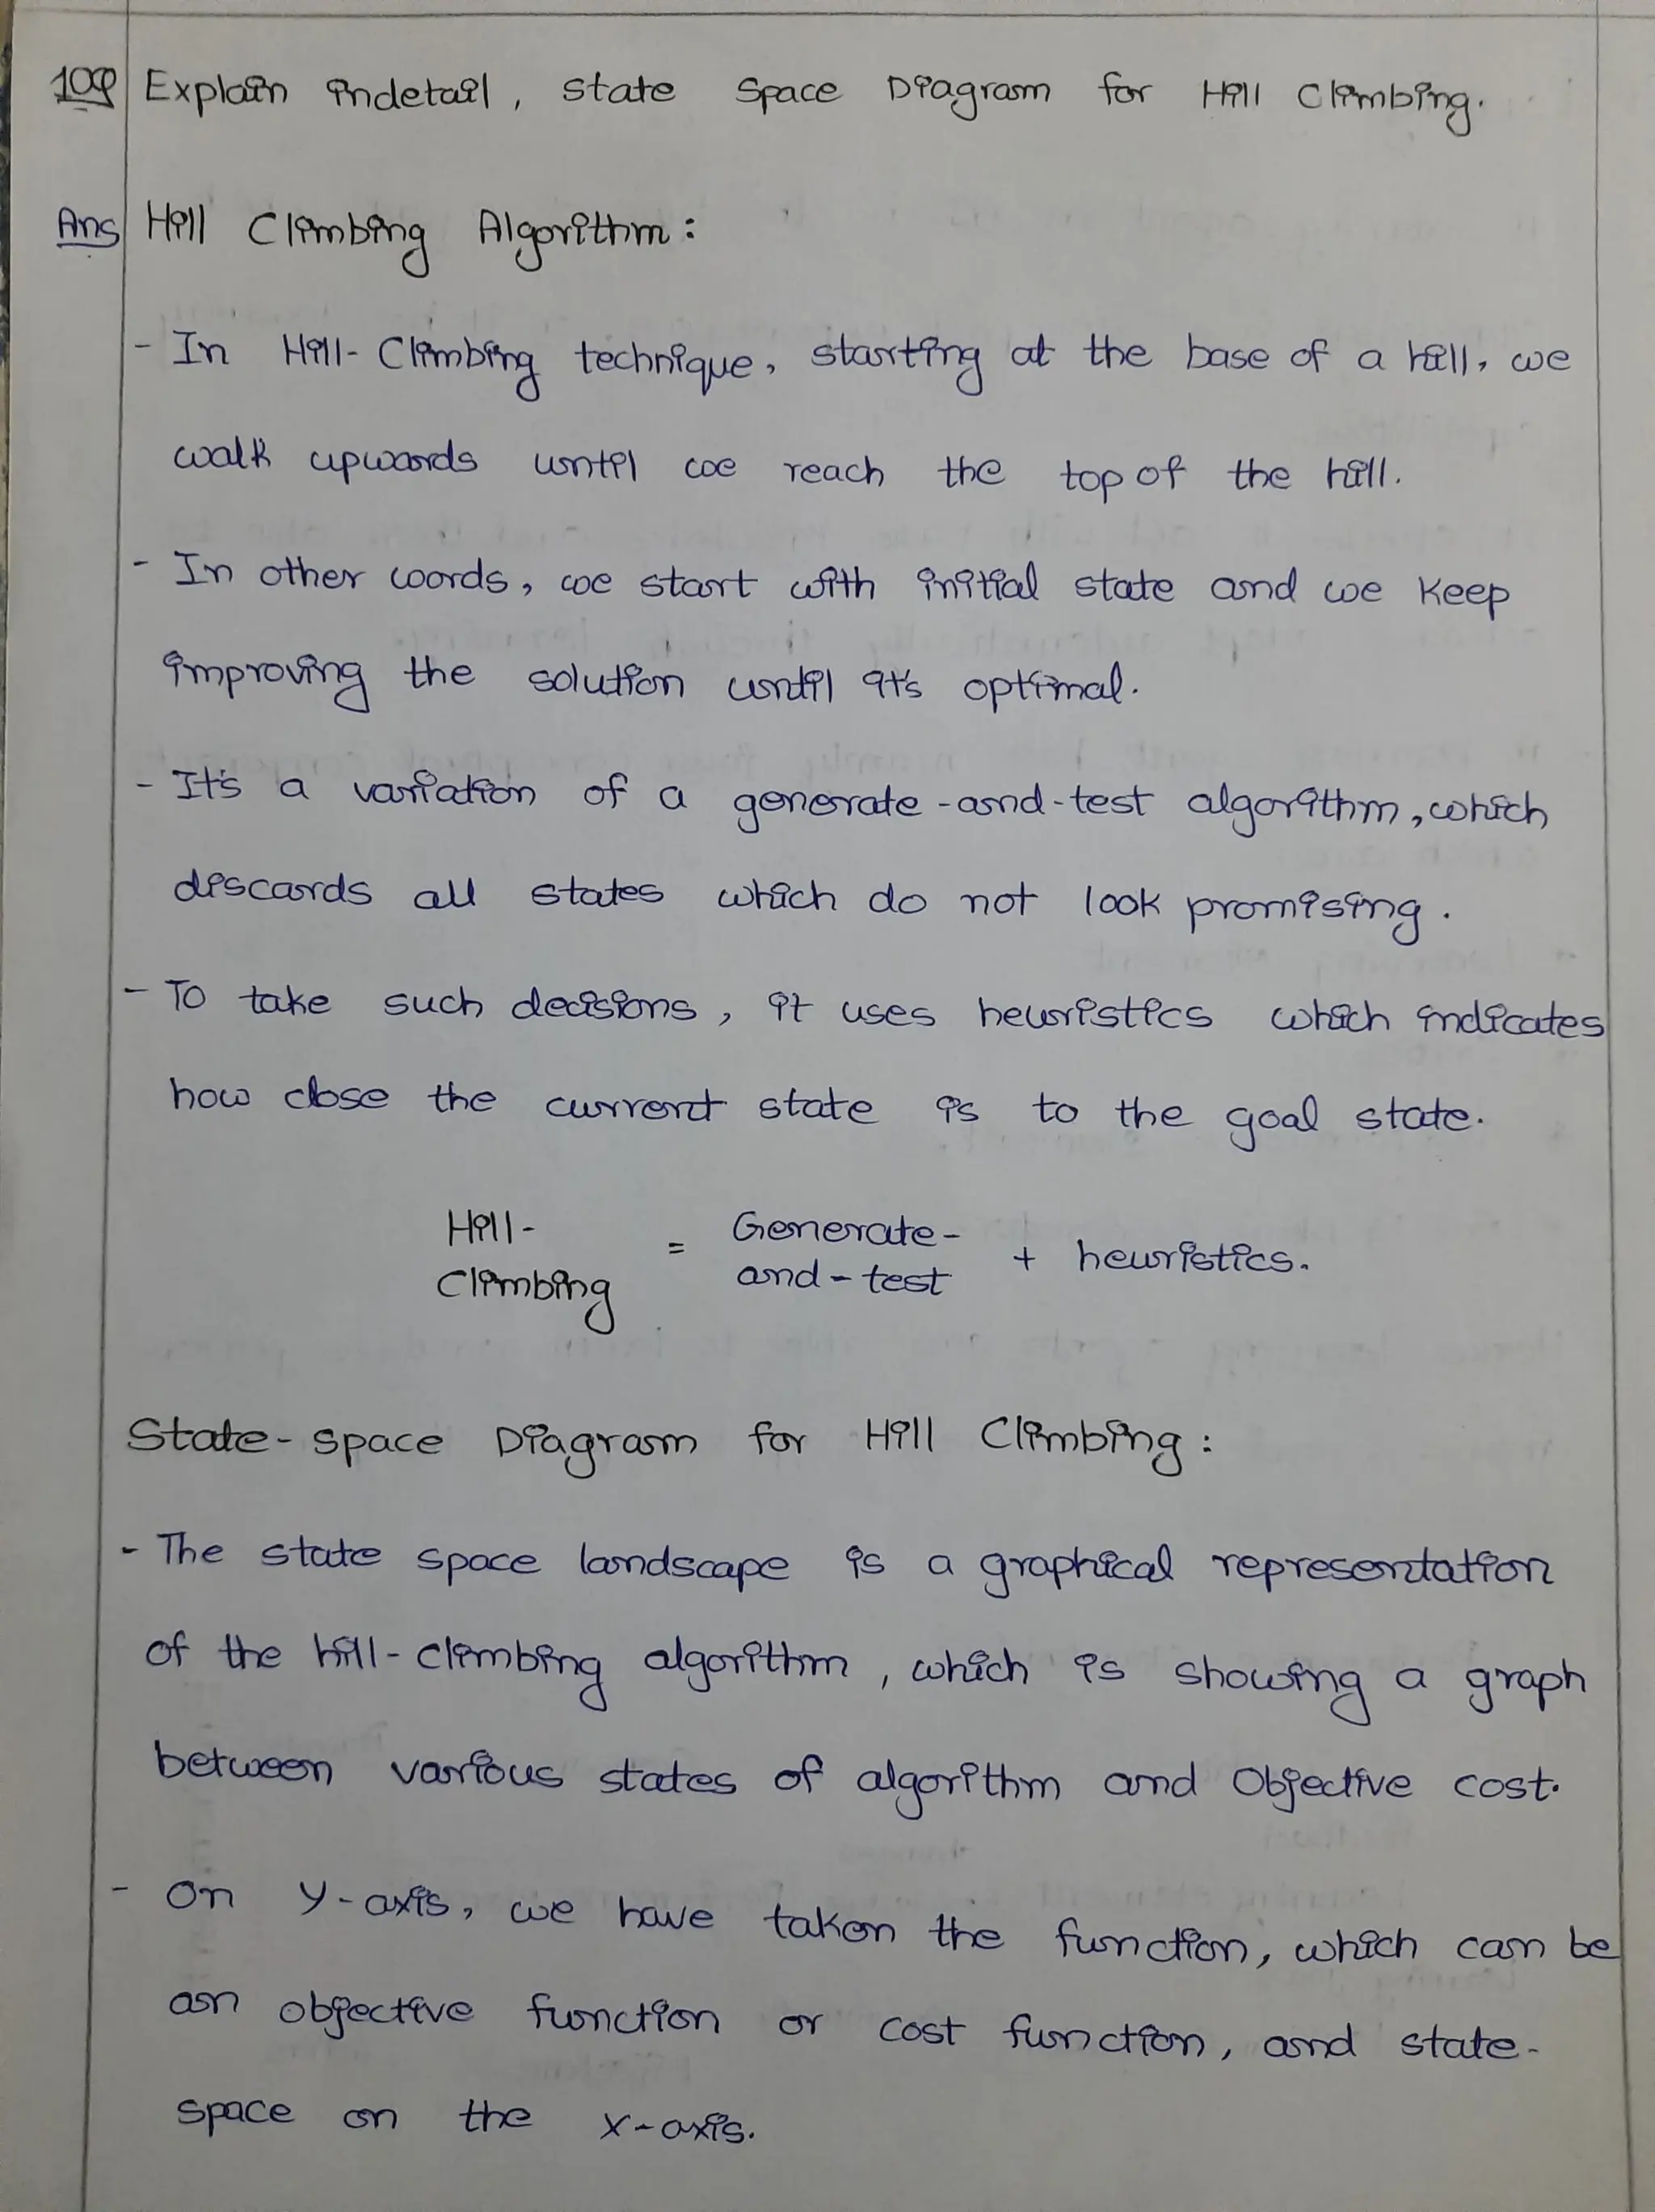 10Q Explain indetail, State Space Diagram for Hill Climbing.
Ans Hill Climbing Algorithm :
- In Hill-Climbing technique, starting at the base of a hill, we
walk upwards until we reach the top of the hill.
- In other words, we start with initial state and we keep
improving the solution until it's optimal.
- It's a variation of a generate-and-test algorithm, which
discards all states which do not look promising.
- To take such decisions, it uses heuristics which indicates
how close the current state is to the goal state.
Hill- = Generate- + heuristics.
Climbing and-test
State-space Diagram for Hill Climbing :
- The state space landscape is a graphical representation
of the hill-climbing algorithm, which is showing a graph
between various states of algorithm and Objective cost.
- On Y-axis, we have taken the function, which can be
an objective function or cost function, and state-
space on the x-axis.